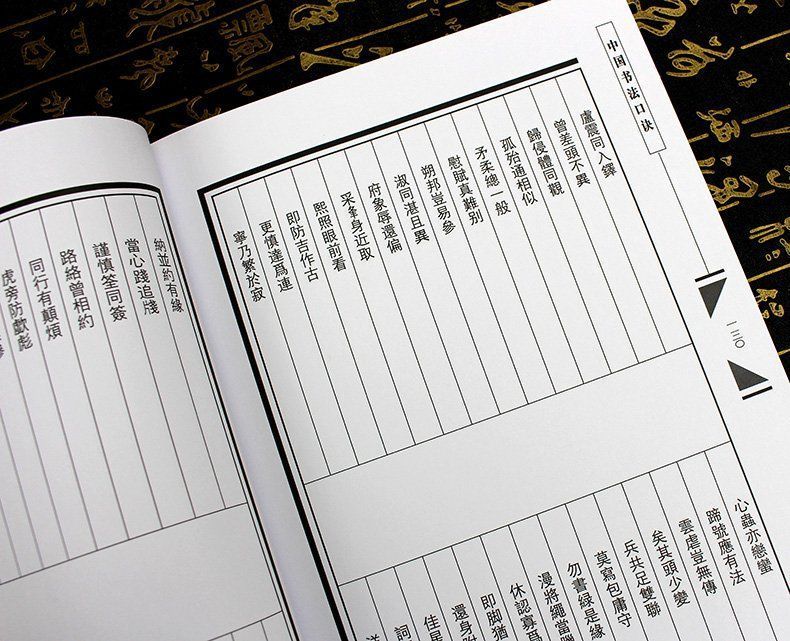 中国书法口诀
一三〇
盧震同入鐸
曾差頭不異
歸侵體同觀
孤殆通相似
矛柔總一般
慰賦真難别
朔邦豈易參
淑同湛且異
府象辱還偏
采夆身近取
熙照眼前看
即防吉作古
更慎達爲連
寧乃繁於寂
心蟲亦戀蠻
蹄號應有法
雲虐豈無傳
矣其頭少變
兵共足雙聯
莫寫包庸守
勿書緑是緣
漫將繩當
休認寡爲
即脚猶
還身
佳星
詞
納並約有緣
當心踐追牋
謹慎筌同簽
路絡曾相約
同行有顛煩
虎旁防獻彪